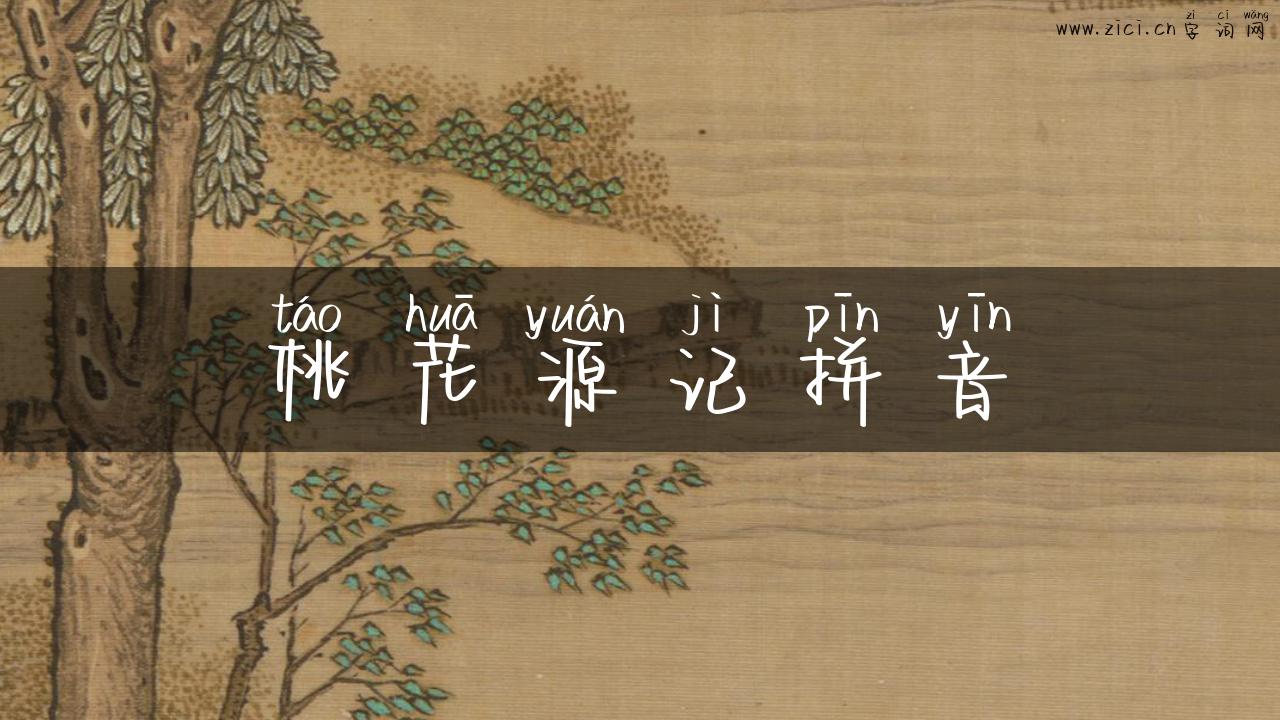 zì cí wǎng
www.zici.cn 字词网
táo huā yuán jì pīn yīn
桃花源记拼音